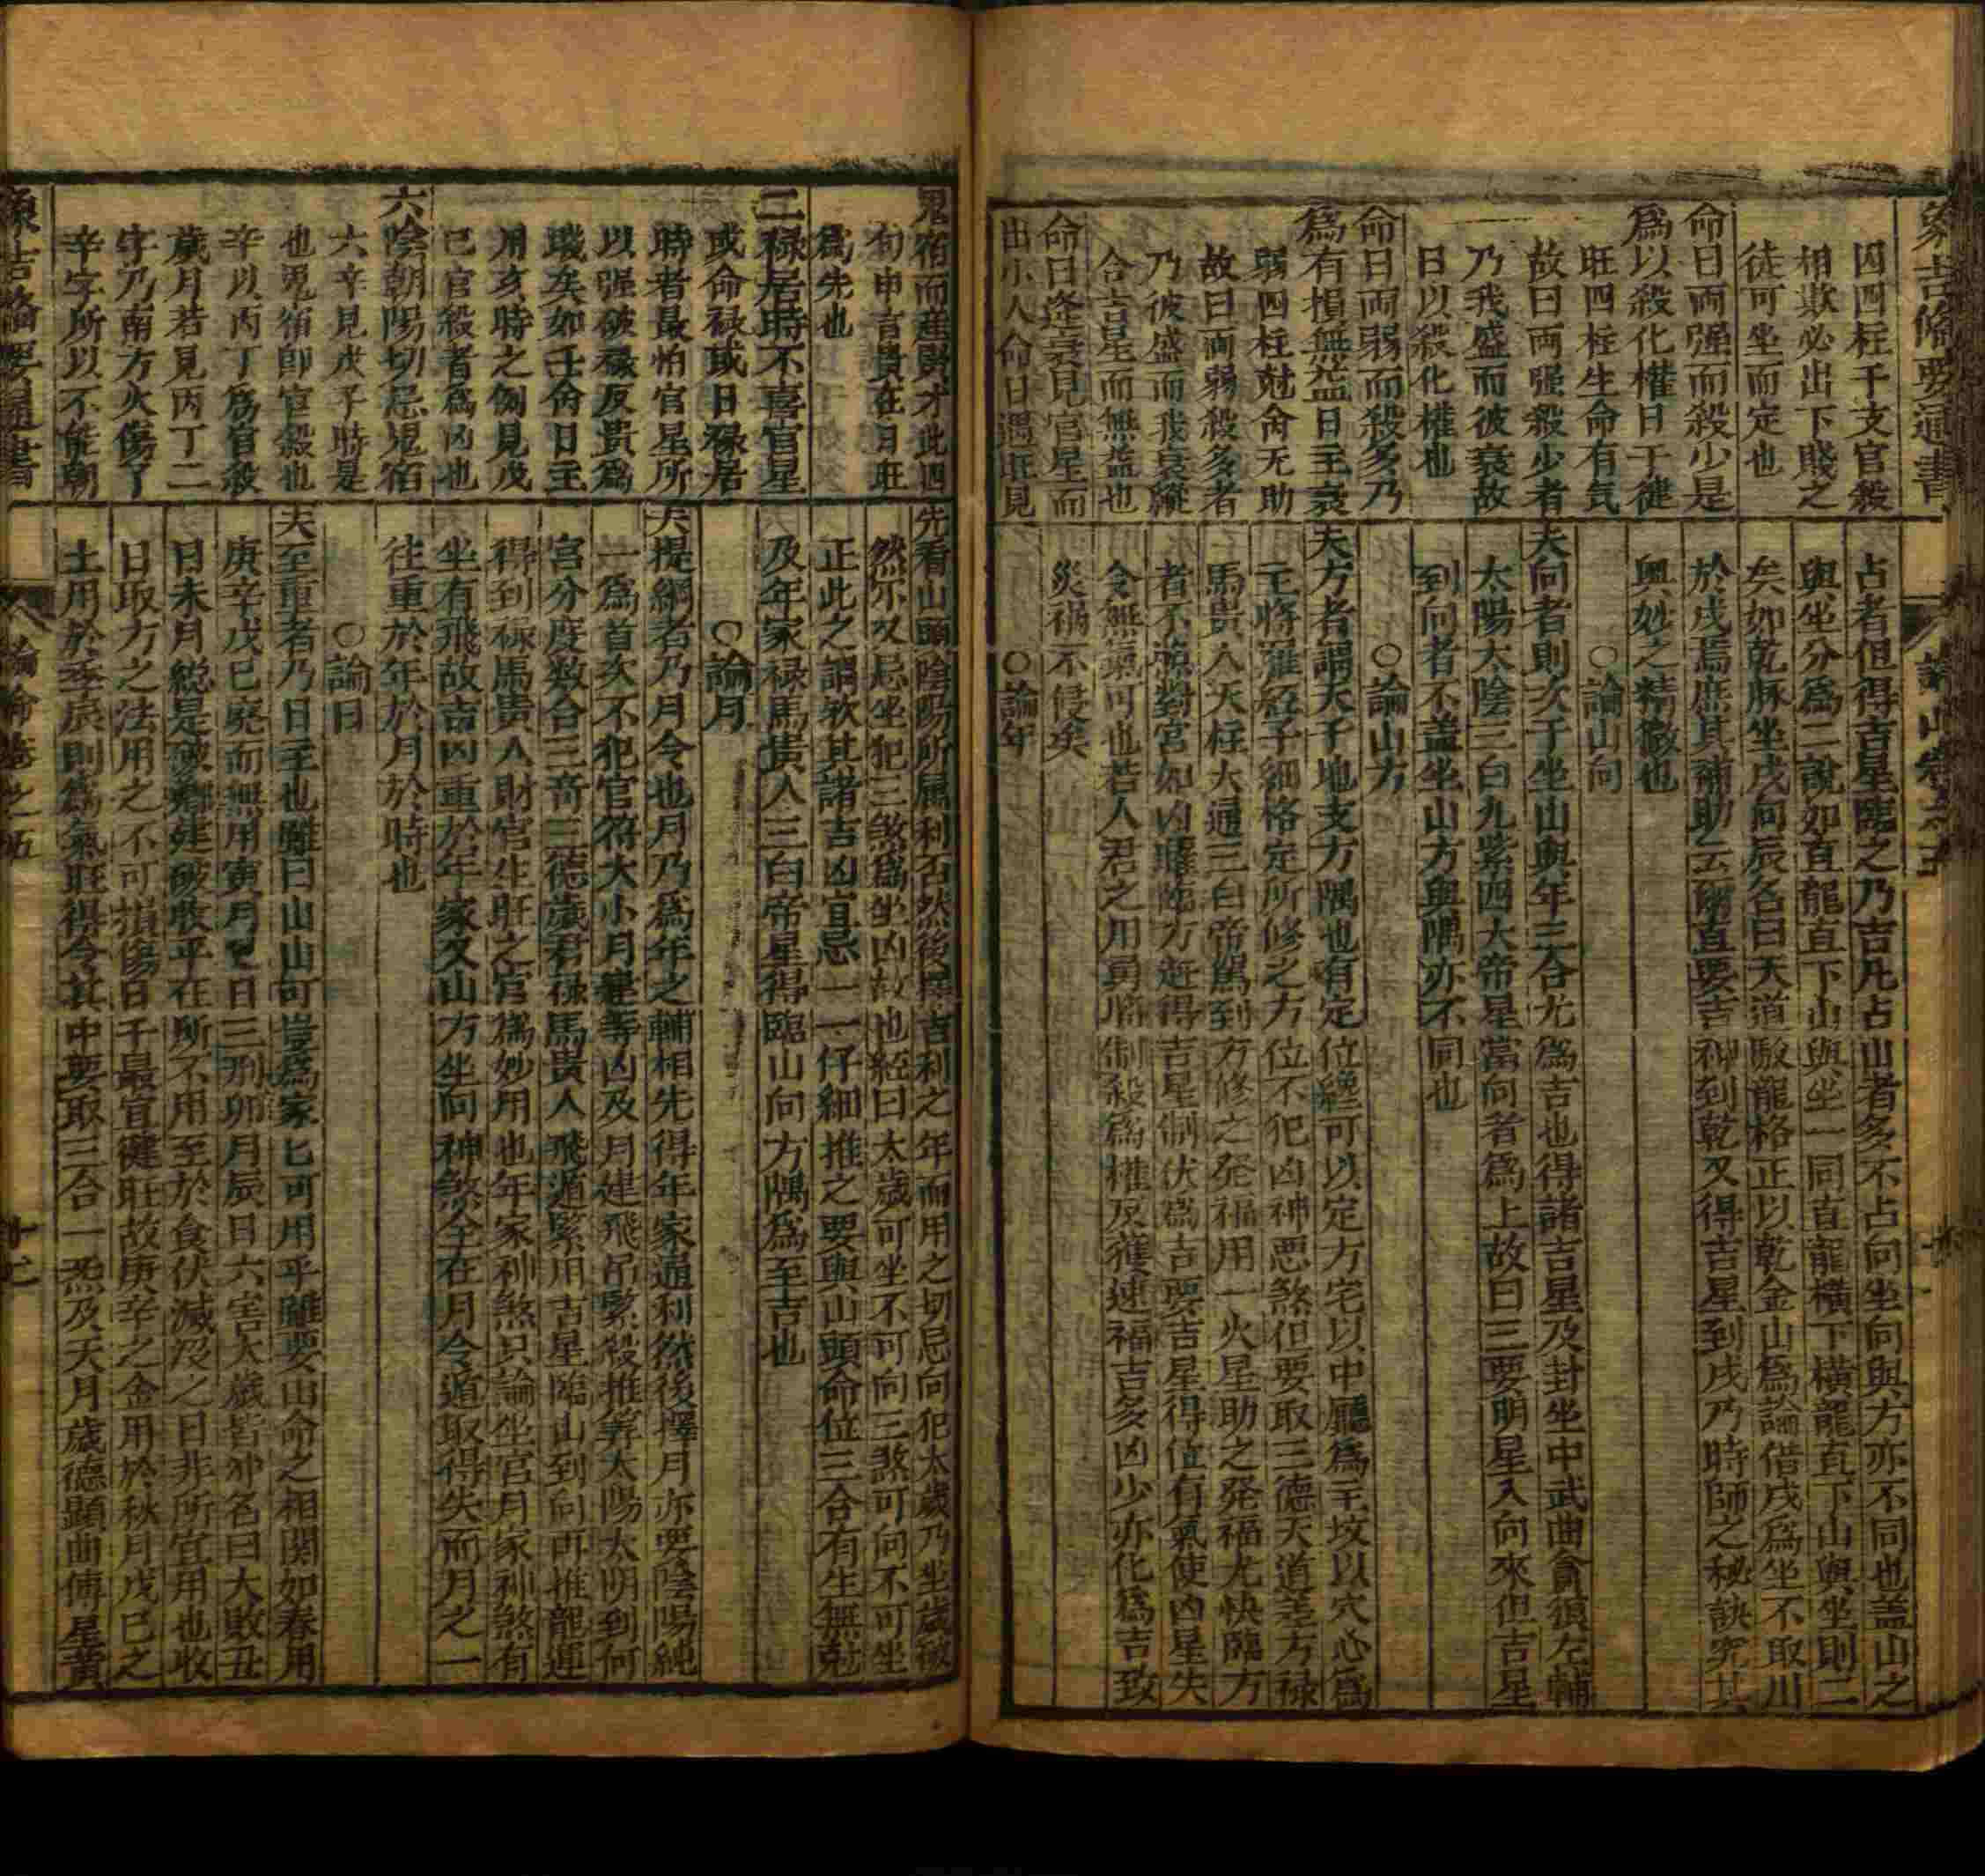 象吉備要通書
囚四柱干支官殺
相欺必出下賤之
徒可坐而定也
命曰両强而殺少是
爲以殺化權日干徤
旺四柱生命有気
故曰両强殺少者
乃我盛而彼衰故
曰以殺化權也
命曰両弱而殺多乃
爲有損無益日主衰
弱四柱尅命无助
故曰両弱殺多者
乃彼盛而我衰縱
合吉星而無益也
命曰逢衰見官星而
出小人命曰遇旺見
占者但得吉星臨之乃吉凡占山者多不占向坐向與方亦不同也盖山之
與坐分爲二說如直龍直下山與坐一同直龍橫下橫龍直下山與坐則二
矣如乾脉坐戌向辰名曰天道敗龍格正以乾金山爲論借戌爲坐不取川
於戌焉庶其補助云爾直要吉神到乾又得吉星到戌乃時師之秘訣究其
與妙之精微也
○論山向
夫向者則次于坐山與年三合尤爲吉也得諸吉星及封坐中武曲貪狼左輔
太陽太陰三白九紫四大帝星當向者爲上故曰三要明星入向來但吉星
到向者不盖坐山方與隅亦不同也
○論山方
夫方者謂天干地支方隅也有定位纔可以定方宅以中廳爲主坟以穴心爲
主將羅経子細格定所修之方位不犯凶神悪煞但要取三德天道差方禄
馬貴人天柱大通三白帝駕到方修之発福用一火星助之発福尤快臨方
者不慮對宮如凶曜臨方赶得吉星制伏爲吉要吉星得位有氣使凶星失
令無氣可也若人君之用勇將制殺爲權反獲速福吉多凶少亦化爲吉致
災禍不侵矣
○論年
鬼宿而産男才此四
句申言貴在日旺
爲先也
二祿居時不喜官星
或命禄或日禄居
時者最怕官星所
以强破禄反貴爲
賤矣如壬命日主
用亥時之例見戊
己官殺者爲凶也
六陰朝陽切忌鬼宿
六辛見戊子時是
也鬼宿卽官殺也
辛以丙丁爲官殺
歲月若見丙丁二
字乃南方火傷了
辛字所以不能朝
先看山頭陰陽所属利否然後擇吉利之年而用之切忌向犯太歲乃坐歲破
然尓又忌坐犯三煞爲坐凶故也經曰太歲可坐不可向三煞可向不可坐
正此之謂欤其諸吉凶宜忌一一仔細推之要與山頭命位三合有生無尅
及年家禄馬貴人三白帝星得臨山向方隅爲至吉也
○論月
夫提綱者乃月令也月乃爲年之輔相先得年家通利然後擇月亦要陰陽純
一爲首次不犯官符大小月建等凶及月建飛吊緊殺推算太陽太明到何
宮分度数合三奇三德歲君禄馬貴人飛遁緊用吉星臨山到向再推龍運
得到禄馬貴人財官生旺之宮爲妙用也年家神煞只論坐宮月家神煞有
坐有飛故吉凶重於年家又山方坐向神煞全在月令遁取得失而月之一
往重於年於月於時也
○論日
夫至重者乃日主也雖曰山山可豈爲家匕可用乎雖要山命之相関如春用
庚辛戊巳発而無用寅月巳日三刑卯月辰日六害大歲皆冲名曰大敗丑
日未月総是破郷建破収平在所不用至於食伏滅没之日非所宜用也收
日取方之法用之不可損傷日干最宜徤旺故庚辛之金用於秋月戊巳之
土用於季辰則爲氣旺得令其中要取三合一炁及天月歲德顯曲傅星黄